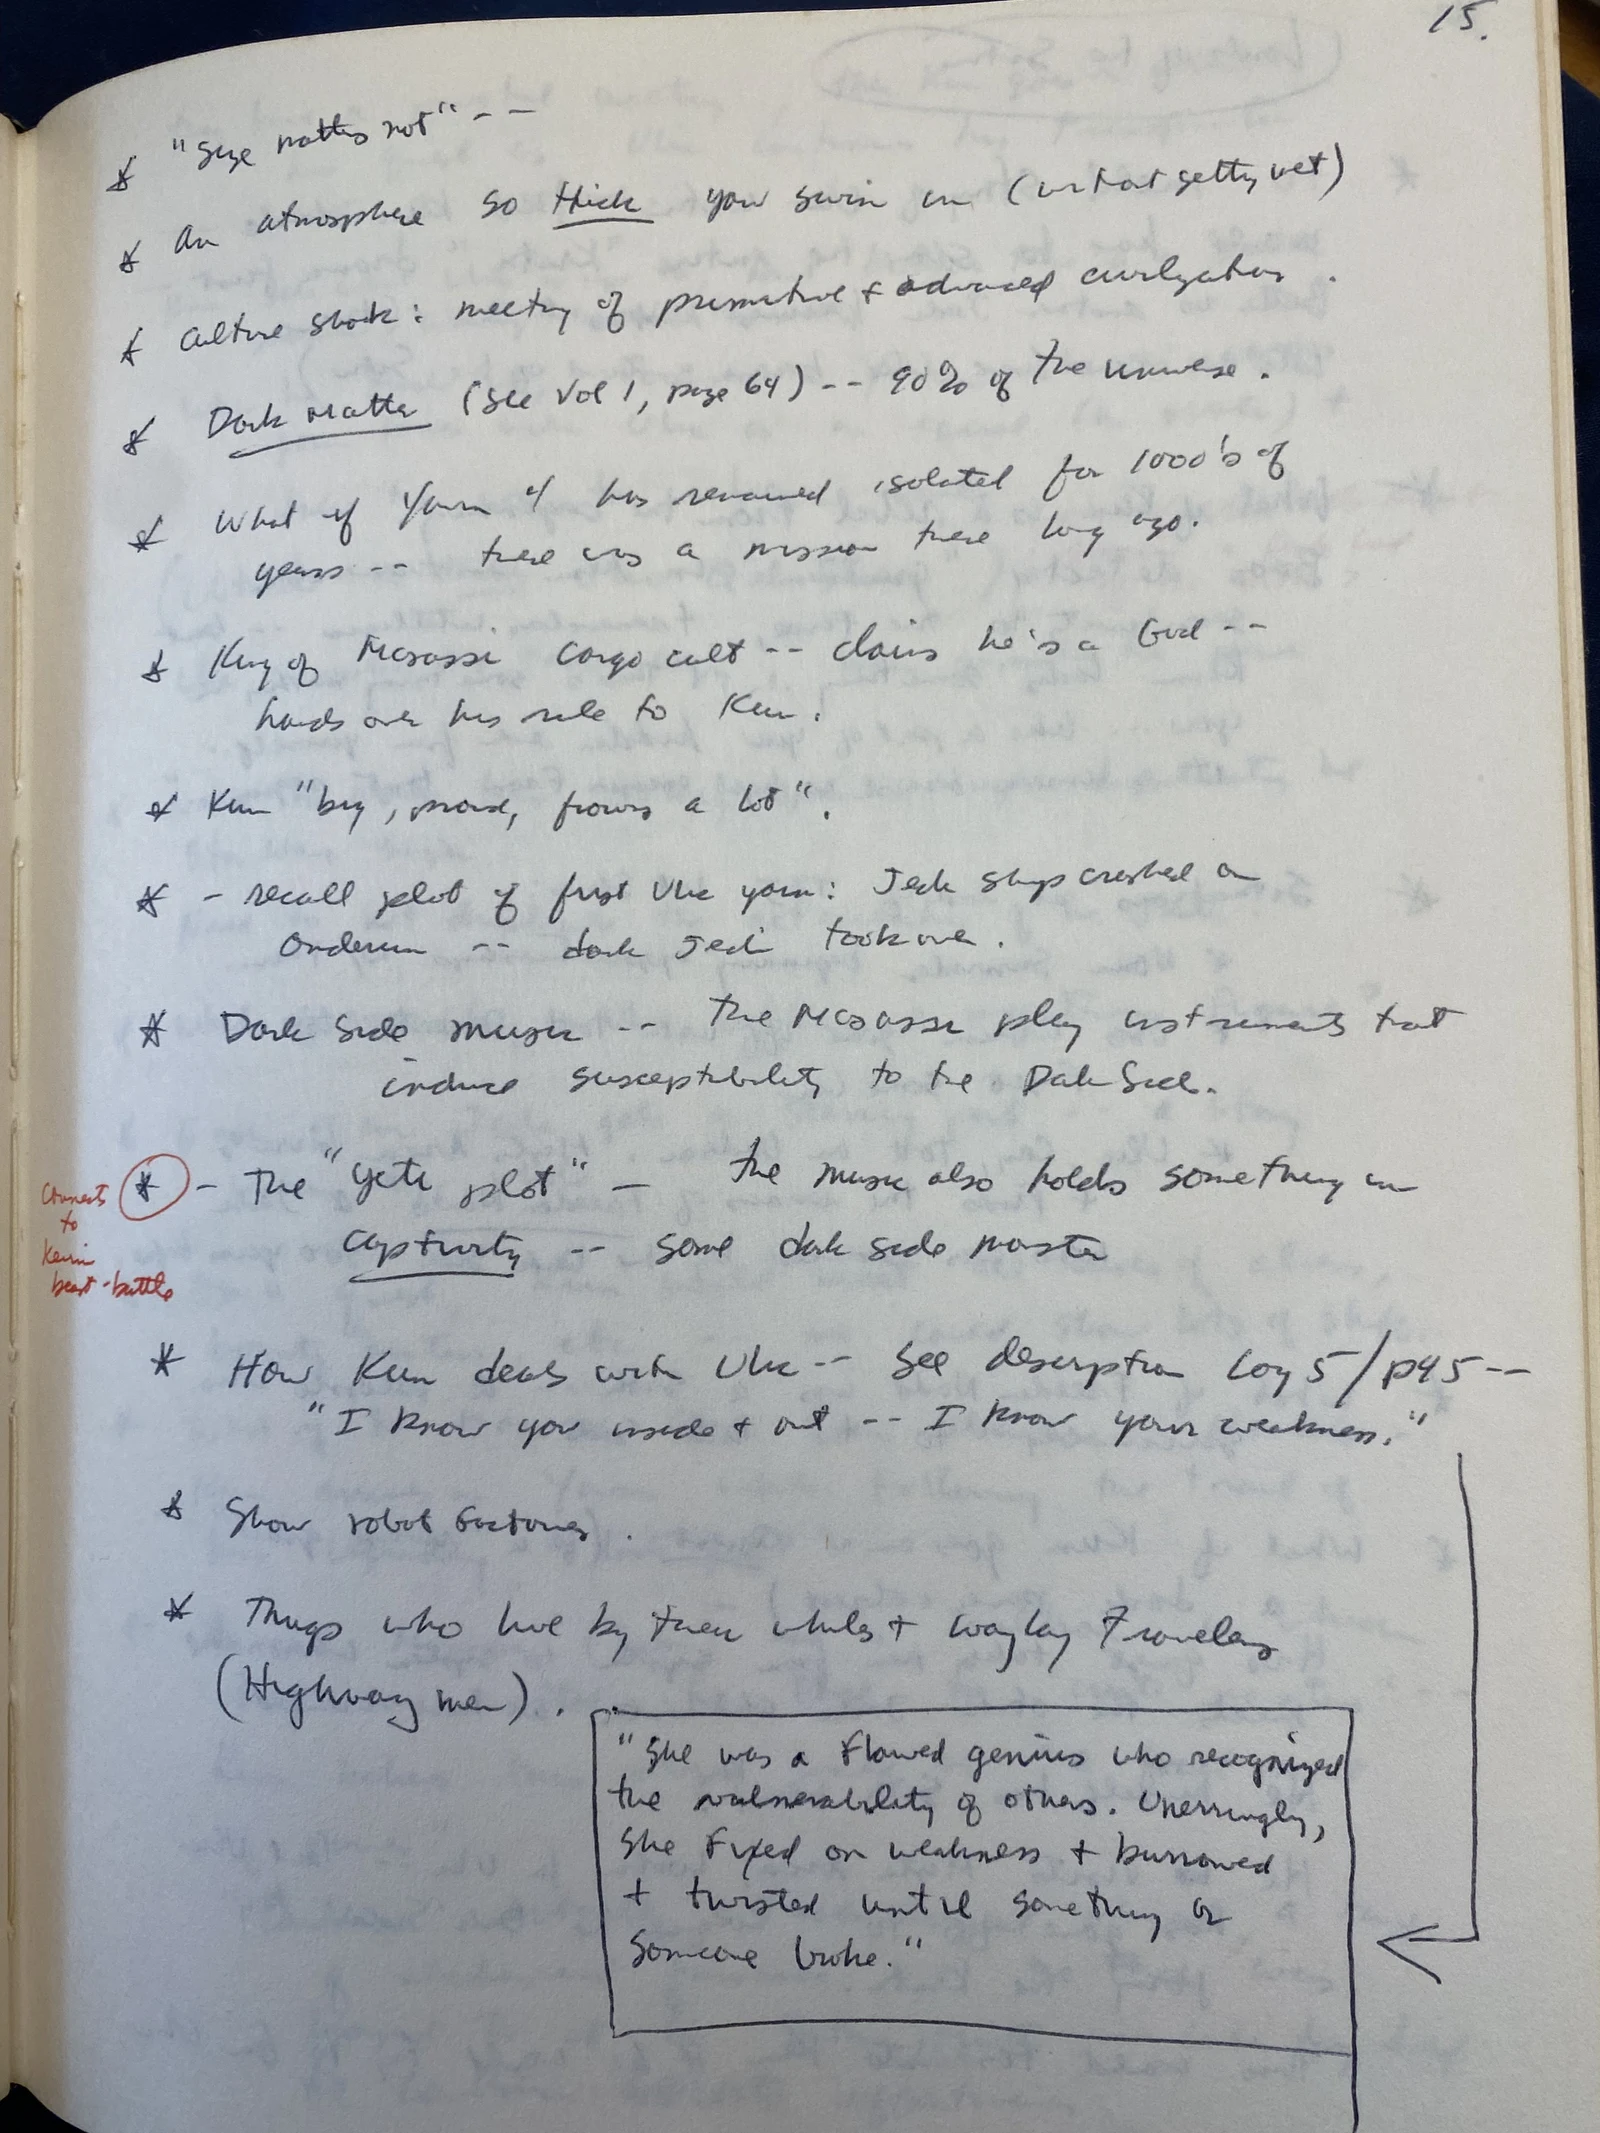 15.
* "Size matters not" --
* An atmosphere so thick you swim in (without getting wet)
* Culture shock: meeting of primitive + advanced civilization.
* Dark Matter (see Vol 1, page 64) -- 90% of the universe.
* What if Yavin 4 has remained isolated for 1000's of
years -- there was a mission there long ago.
* King of Massassi cargo cult -- claims he's a God --
hands over his rule to Kun.
* Kun "big, proud, frowns a lot".
* - recall plot of first Ulic yarn: Jedi ships crashed on
Onderon -- dark Jedi took over.
* Dark Side music -- the Massassi play instruments that
induce susceptibility to the Dark Side.
* - The "Yeti plot" - the music also holds something in
captivity -- some dark side master
Connects
to
Kevin
beast-battle
* How Kun deals with Ulic -- see description Log 5/p45 --
"I know you inside + out -- I know your weakness."
* Show robot factories.
* Thugs who live by their whiles + waylay travelers
(Highwaymen).
"She was a flawed genius who recognized
the vulnerability of others. Unerringly,
she fixed on weakness + burrowed
+ twisted until something or
someone broke."